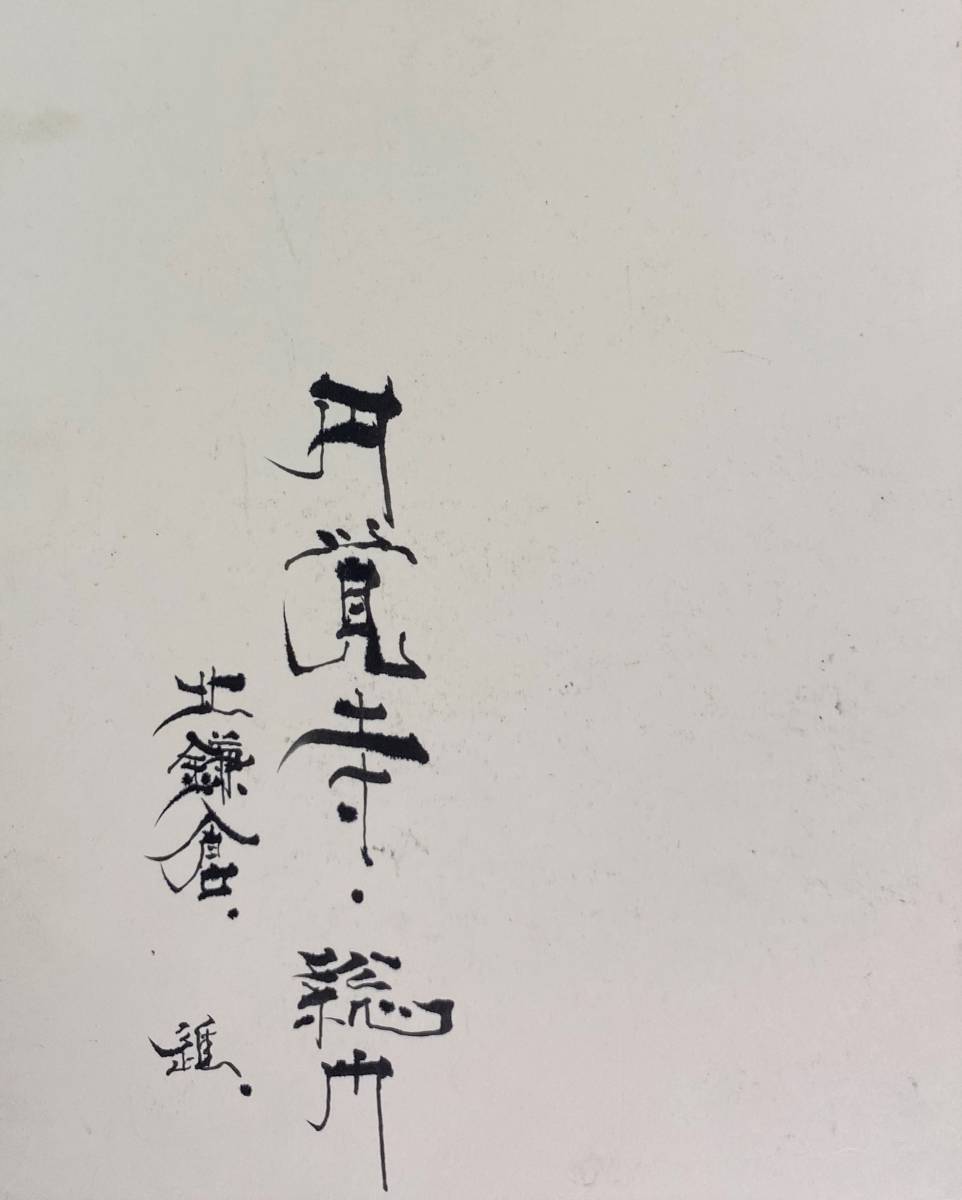 円覚寺・総門
北鎌倉.